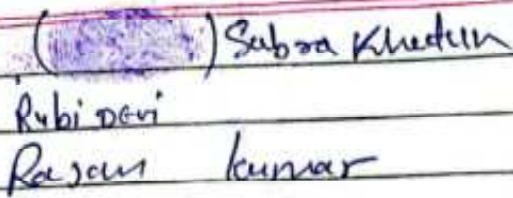 ( ) Sabra Khedun
Rubi Devi
Rajan kumar